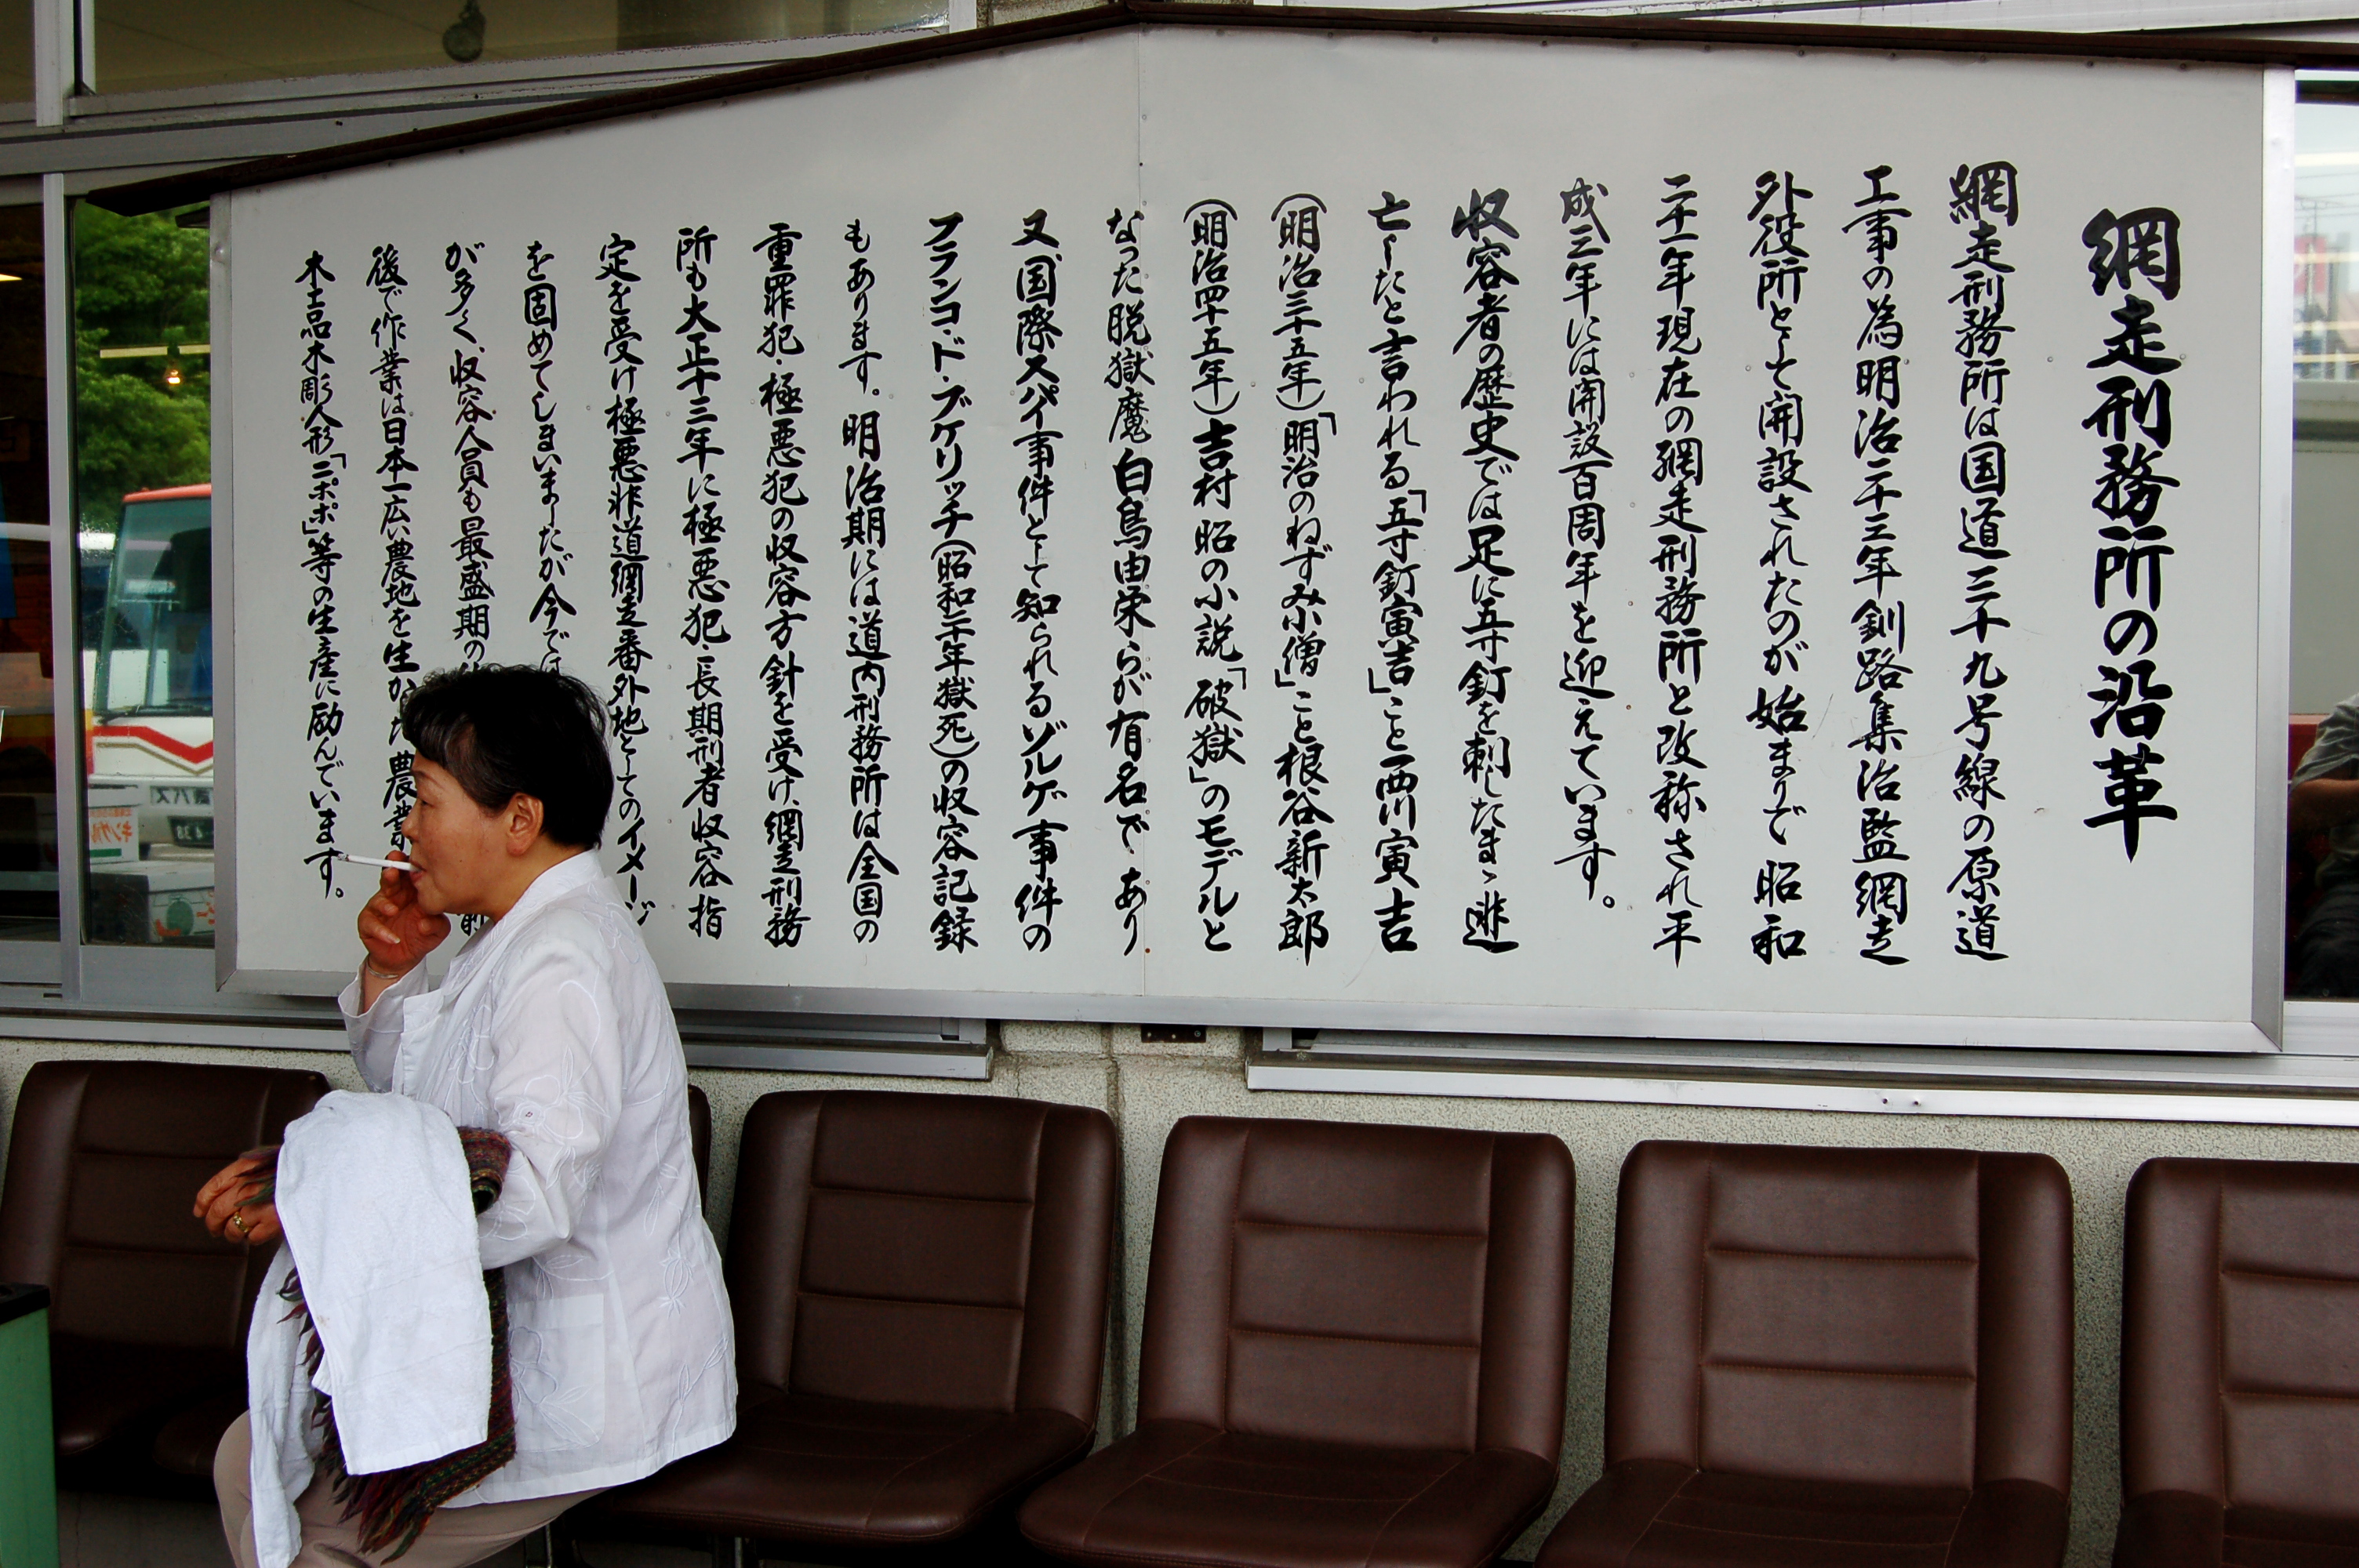 網走刑務所の沿革
網走刑務所は国道三十九号線の原道
工事の為明治二十三年釧路集治監網走
外役所として開設されたのが始まりで昭和
二十一年現在の網走刑務所と改称され平
成三年には開設百周年を迎えています。
収容者の歴史では足に五寸釘を刺したまゝ逃
亡したと言われる「五寸釘寅吉」こと西川寅吉
(明治三十五年)「明治のねずみ小僧」こと根谷新太郎
(明治四十五年)吉村昭の小説「破獄」のモデルと
なった脱獄魔白鳥由栄らが有名であり
又、国際スパイ事件として知られるゾルゲ事件の
ブランコ・ド・ブケリッチ(昭和二十年獄死)の収容記録
もあります。明治期には道内刑務所は全国の
重罪犯・極悪犯の収容方針を受け、網走刑務
所も大正十三年に極悪犯・長期刑者収容指
定を受け極悪非道網走番外地としてのイメージ
を固めてしまいましたが今では
が多く、収容人員も最盛期の
後で作業は日本一広い農地を生かした農業
木工品木彫人形「ニポポ」等の生産に励んでいます。